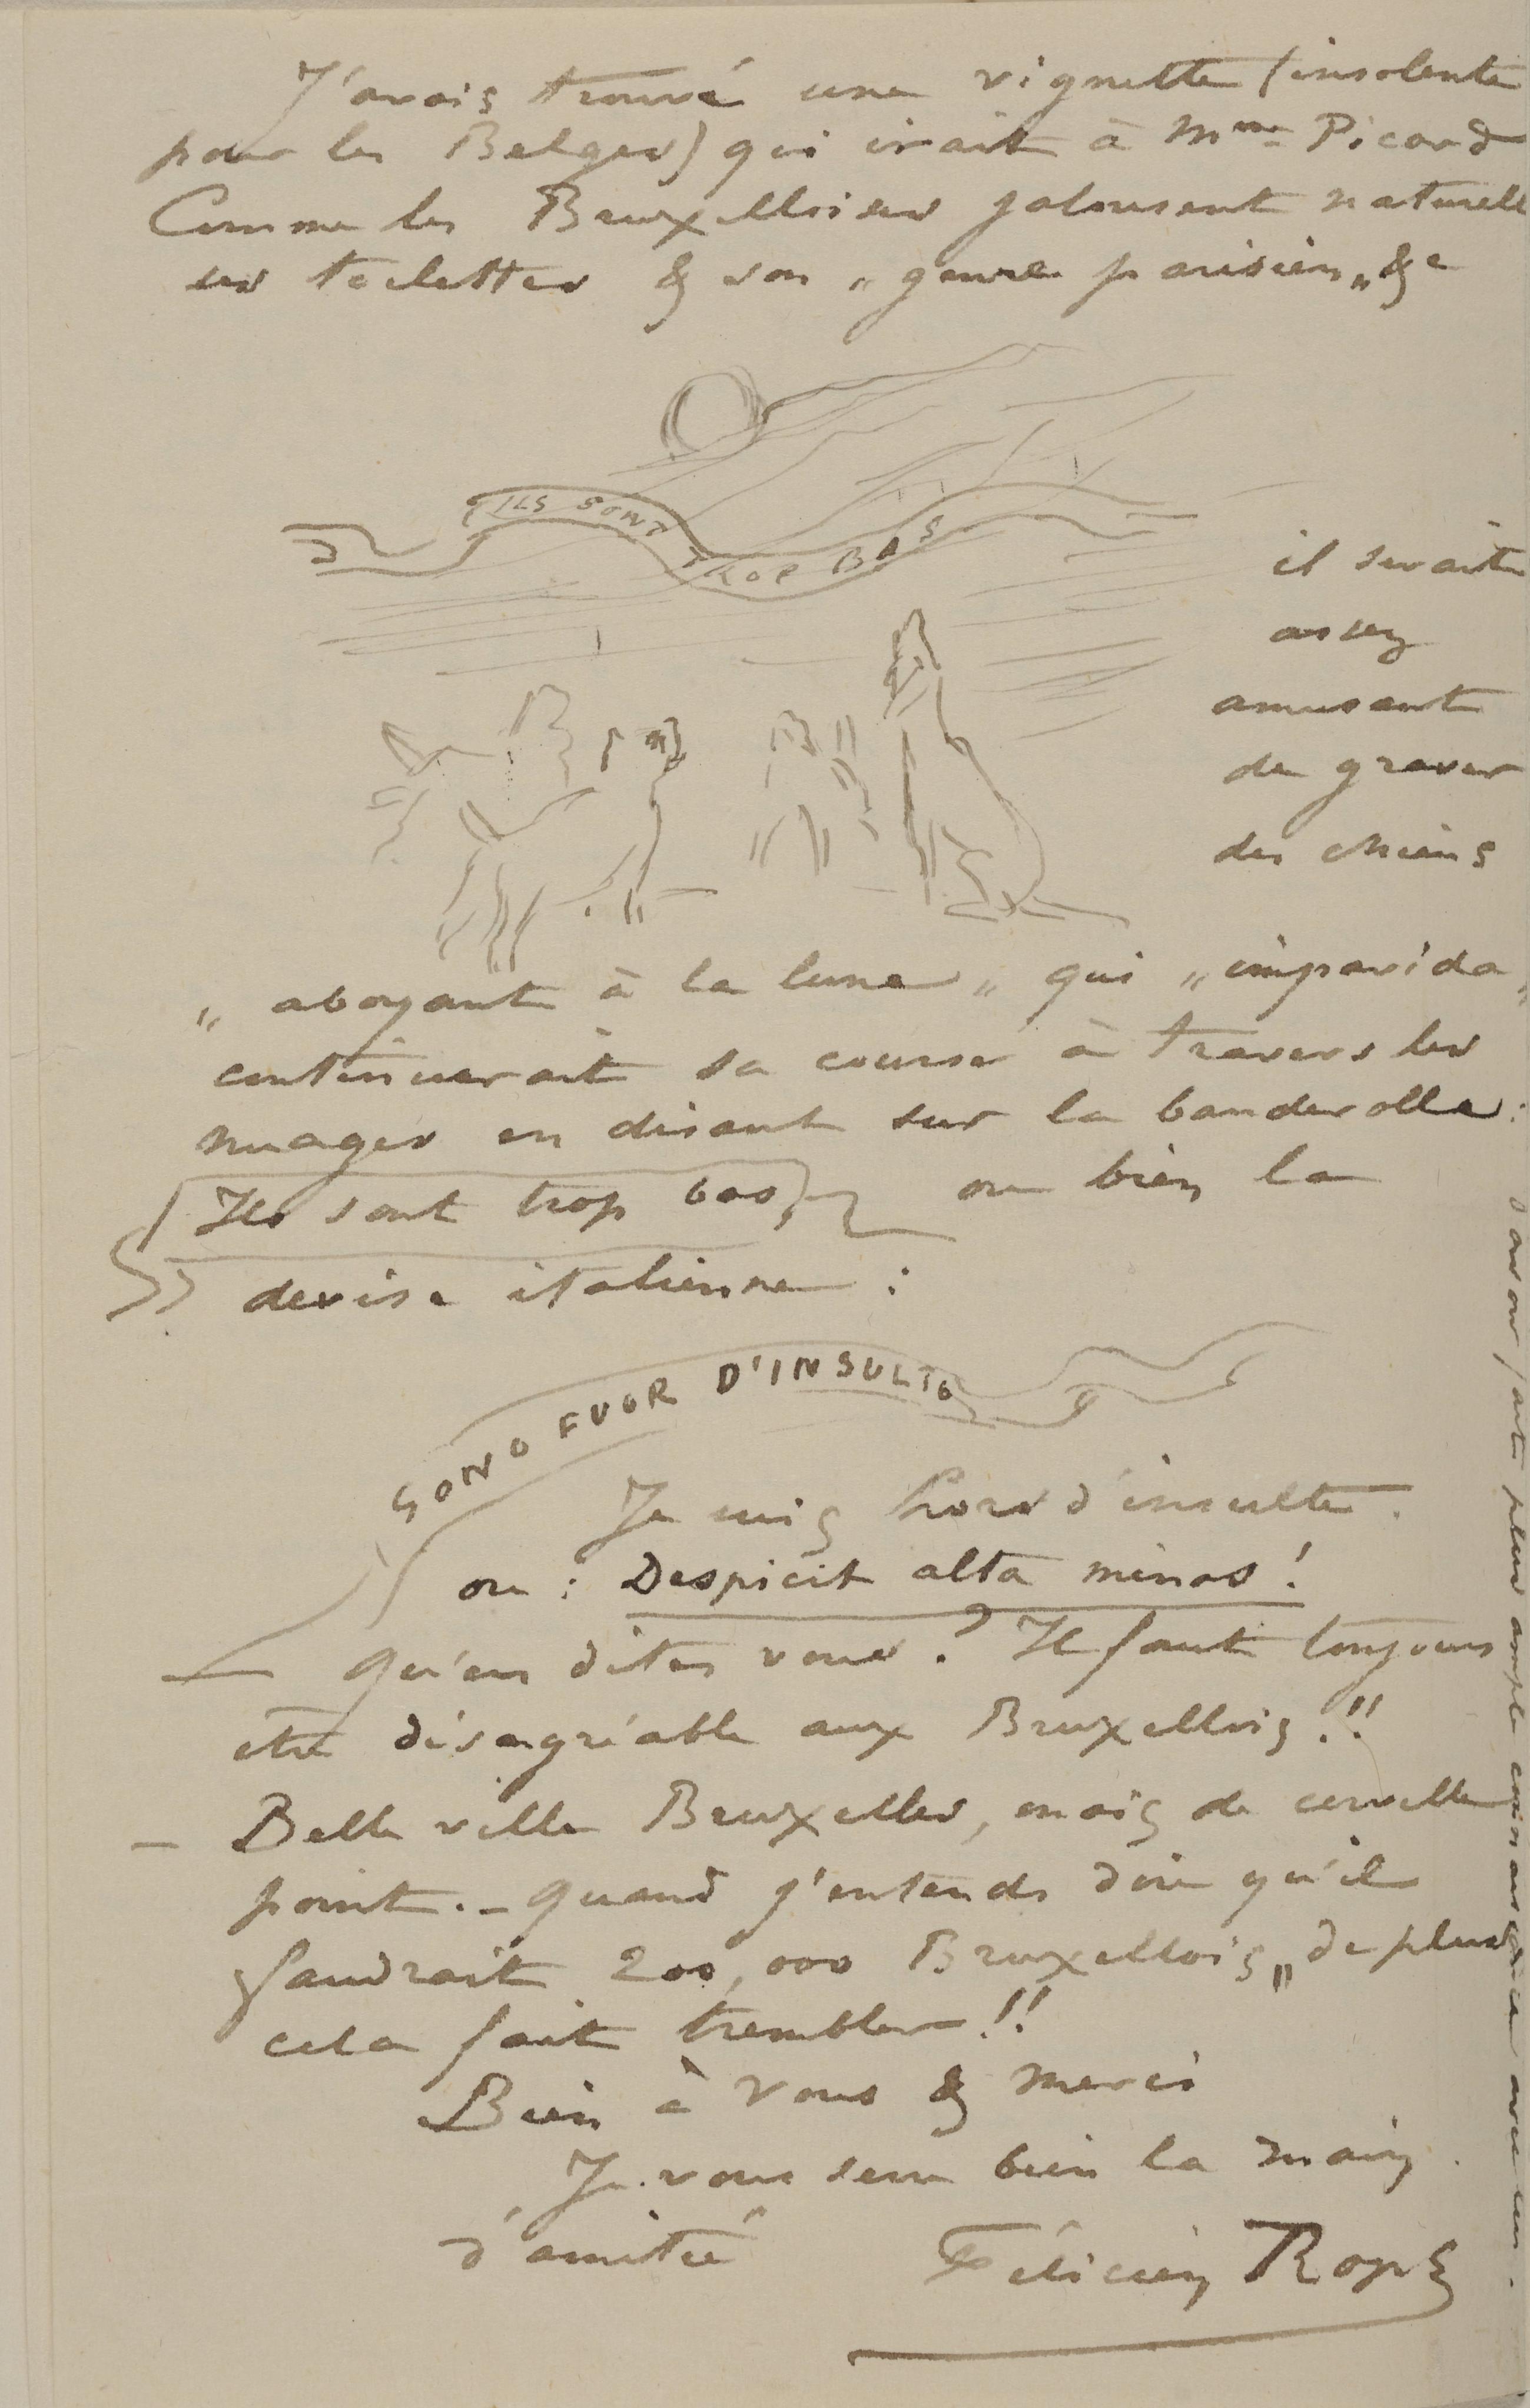 J'avais trouvé une vignette (insolente
pour les Belges) qui irait à Mme Picard
Comme les Bruxelloises jalousent naturell
ses toilettes & son „ genre parisien „ &c
ILS SONT TROP BAS
il serait
assez
amusant
de graver
des chiens
„ aboyant à la lune „ qui „ impavida „
continuerait sa course à travers les
nuages en disant sur la banderolle :
Ils sont trop bas, ou bien la
devise italienne :
SONO FUOR D'INSULTO
Je suis hors d'insulte.
ou : Despicit alta minas !
— Qu'en dites vous ? Il faut toujours
être désagréable aux Bruxellois !!
— Belle ville Bruxelles, mais de cervelle
point. – Quand j'entends dire qu'il
faudrait 200,000 Bruxellois „ de plus
cela fait trembler !!
Bien à vous & merci
Je vous serre bien la main
d'amitié
Félicien Rops
faite plus ample connaissance avec eux.